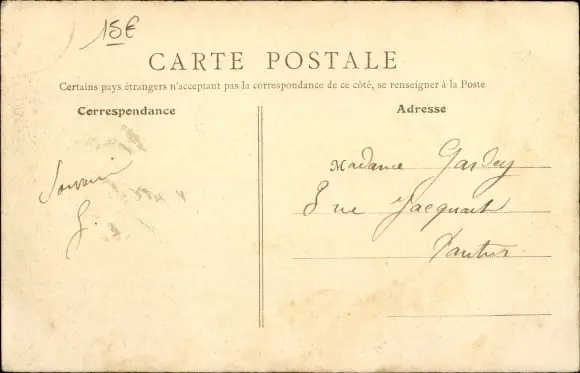 15€
CARTE POSTALE
Certains pays étrangers n'acceptant pas la correspondance de ce côté, se renseigner à la Poste
Correspondance
Adresse
Souvenir
G.
Madame Gardey
8 rue Jacquart
Pantin